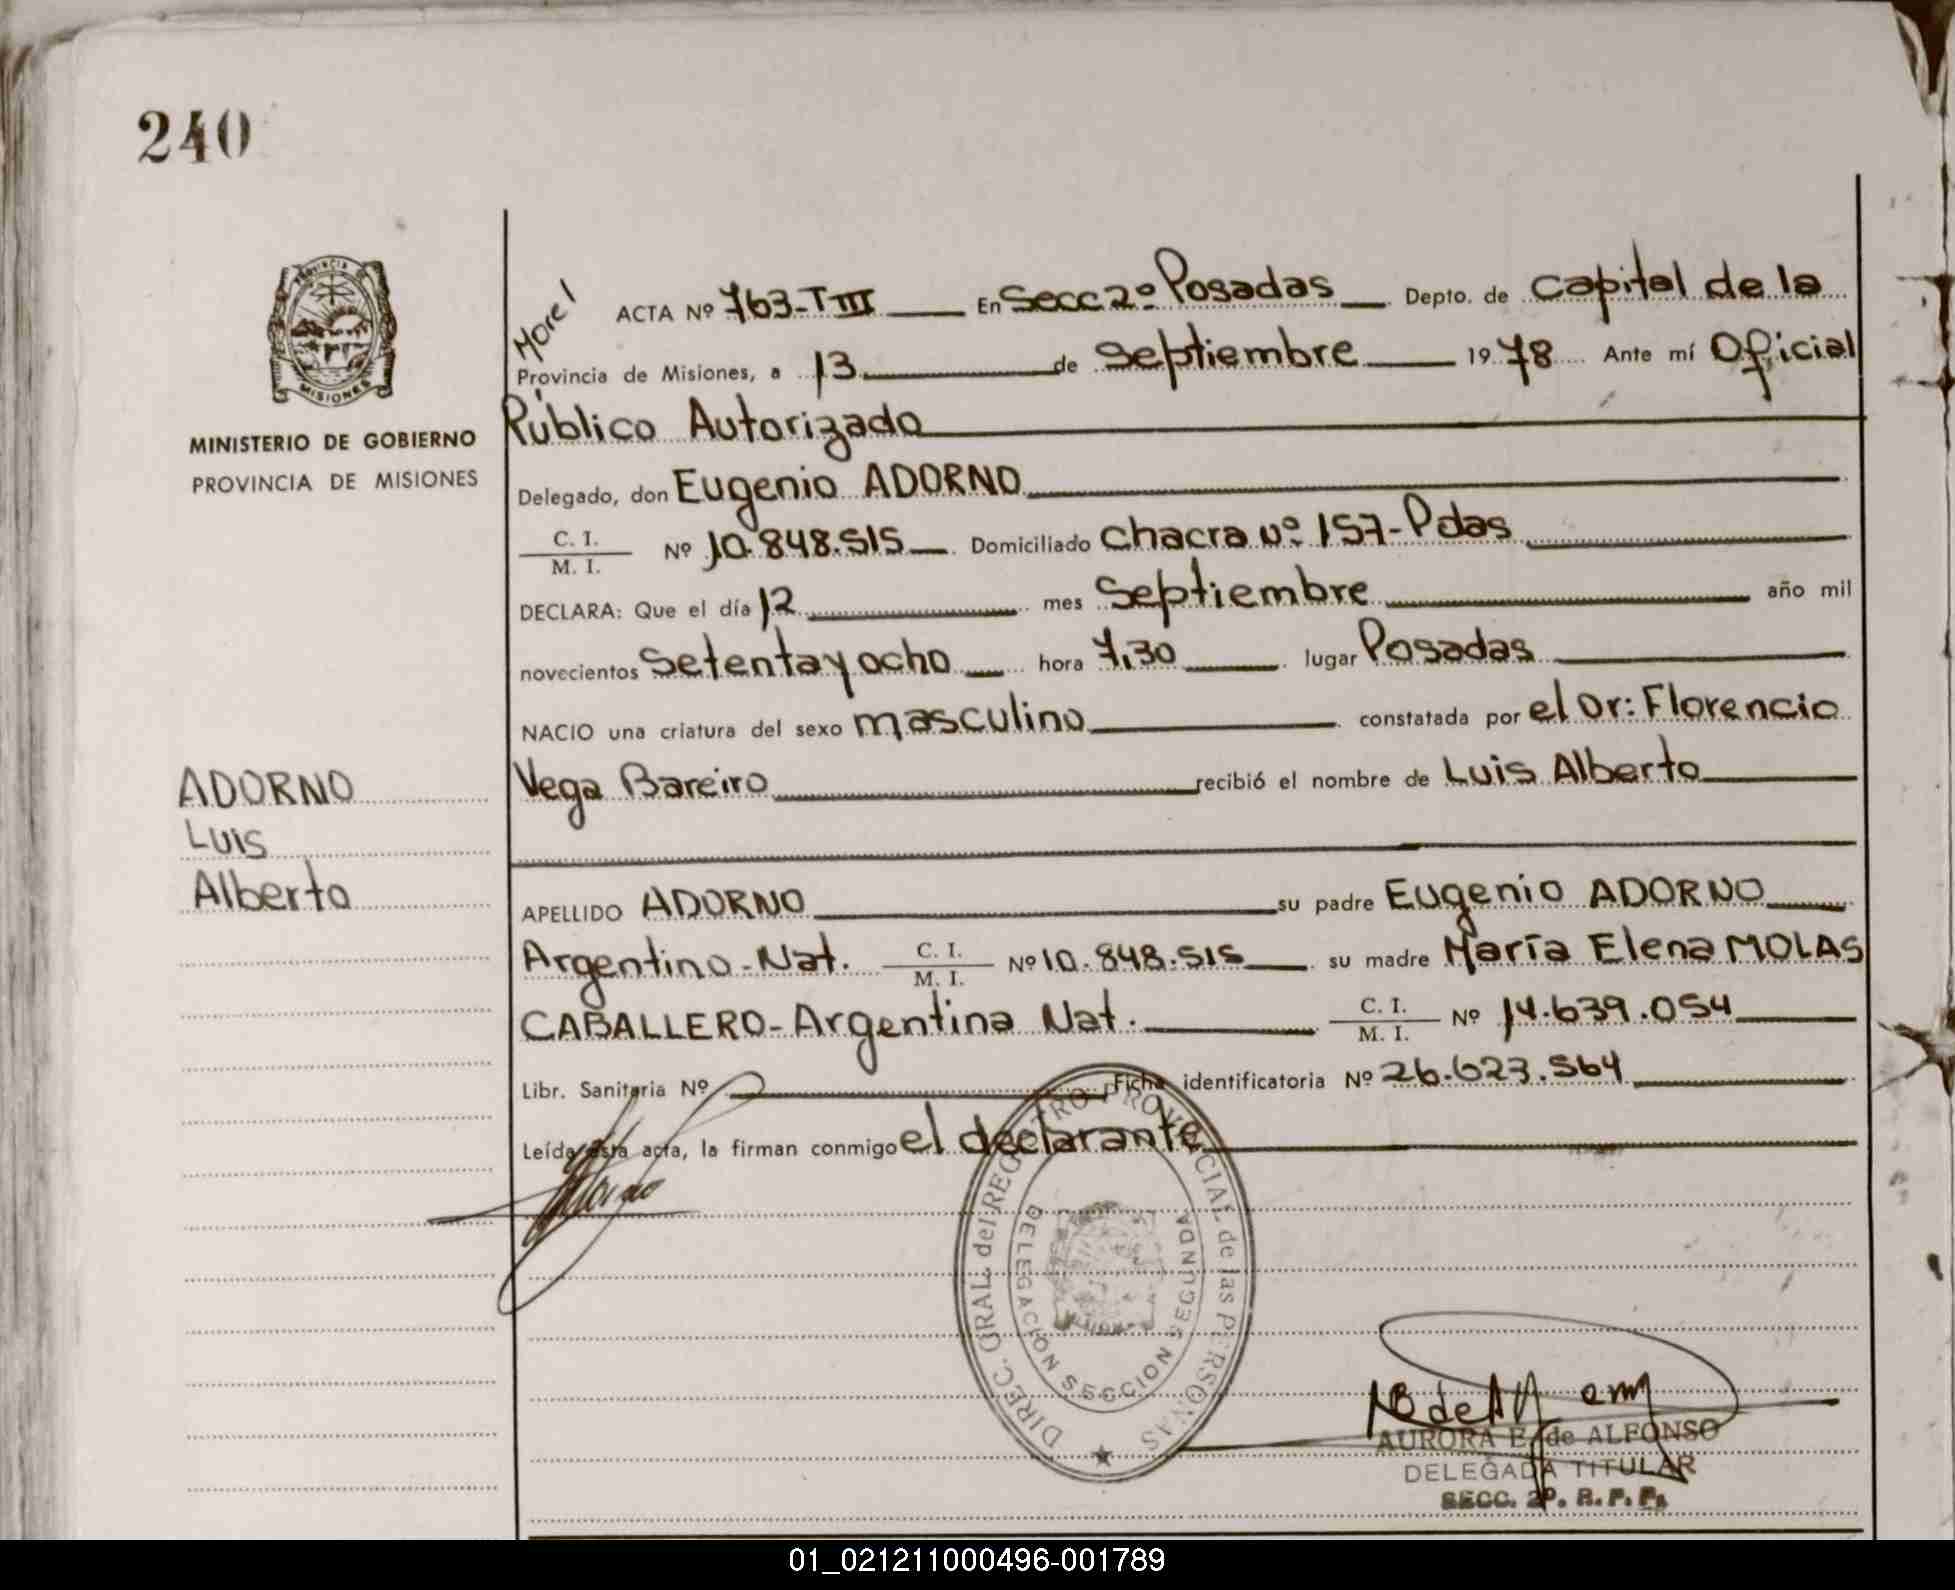 240
PROVINCIA DE
MISIONES
MINISTERIO DE GOBIERNO
PROVINCIA DE MISIONES
ADORNO
Luis
Alberto
ACTA Nº 763-T III En Secc 2º Posadas Depto. de Capital de la
Provincia de Misiones, a 13 de Septiembre 1978 Ante mí Oficial
Público Autorizado
Delegado, don Eugenio ADORNO
C. I.
M. I. Nº 10.848.515 Domiciliado Chacra Nº 157-Pdas
DECLARA: Que el día 12 mes Septiembre año mil
novecientos Setenta y ocho hora 7,30 lugar Posadas
NACIO una criatura del sexo masculino constatada por el Dr: Florencio
Vega Bareiro recibió el nombre de Luis Alberto
APELLIDO ADORNO su padre Eugenio ADORNO
Argentino-Nat. C. I. M. I. Nº 10.848.515 su madre María Elena MOLAS
CABALLERO-Argentina Nat. C. I. M. I. Nº 14.639.054
Libr. Sanitaria Nº Ficha identificatoria Nº 26.623.564
Leída esta acta, la firman conmigo el declarante
DIREC. GRAL. del REGISTRO PROVINCIAL de las PERSONAS
DELEGACION SECCION SEGUNDA
AURORA E. de ALFONSO
DELEGADA TITULAR
SECC. 2ª. R. P. P.
01_021211000496-001789